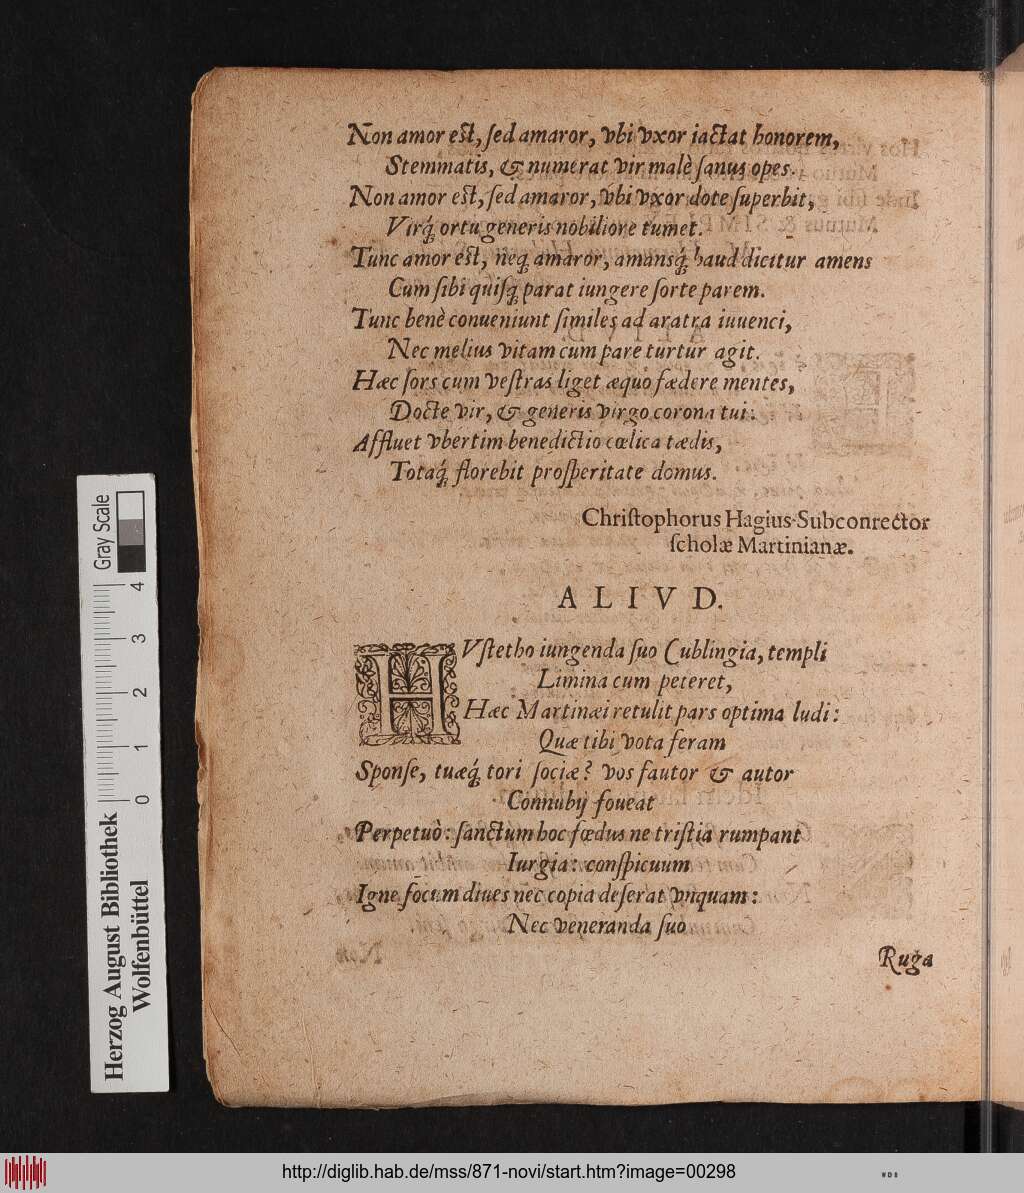 Non amor eſt, ſed amaror, vbi vxor iactat honorem,
Stemmatis, & numerat vir malè ſanus opes.
Non amor eſt, ſed amaror, vbi vxor dote ſuperbit,
Virq́ ortu generis nobiliore tumet.
Tunc amor eſt, neq́ amaror, amansq́ haud dicitur amens
Cum ſibi quiſq́ parat iungere ſorte parem.
Tunc benè conueniunt ſimiles ad aratra iuuenci,
Nec melius vitam cum pare turtur agit.
Hæc ſors cum veſtras liget æquo fædere mentes,
Docte vir, & generis virgo corona tui:
Affluet vbertim benedictio cœlica tædis,
Totaq́ florebit proſperitate domus.
Chriſtophorus Hagius Subconrector
ſcholæ Martinianæ.
ALIVD.
HVſtetho iungenda ſuo Cublingia, templi
Limina cum peteret,
Hæc Martinæi retulit pars optima ludi:
Quæ tibi vota feram
Sponſe, tuæq́ tori ſociæ? vos fautor & autor
Connubij foueat
Perpetuò: ſanctum hoc fœdus ne triſtia rumpant
Iurgia: conſpicuum
Igne focum diues nec copia deſerat vnquam:
Nec veneranda ſuo
Ruga
Gray Scale
4 3 2 1 0
Herzog August Bibliothek
Wolfenbüttel
http://diglib.hab.de/mss/871-novi/start.htm?image=00298